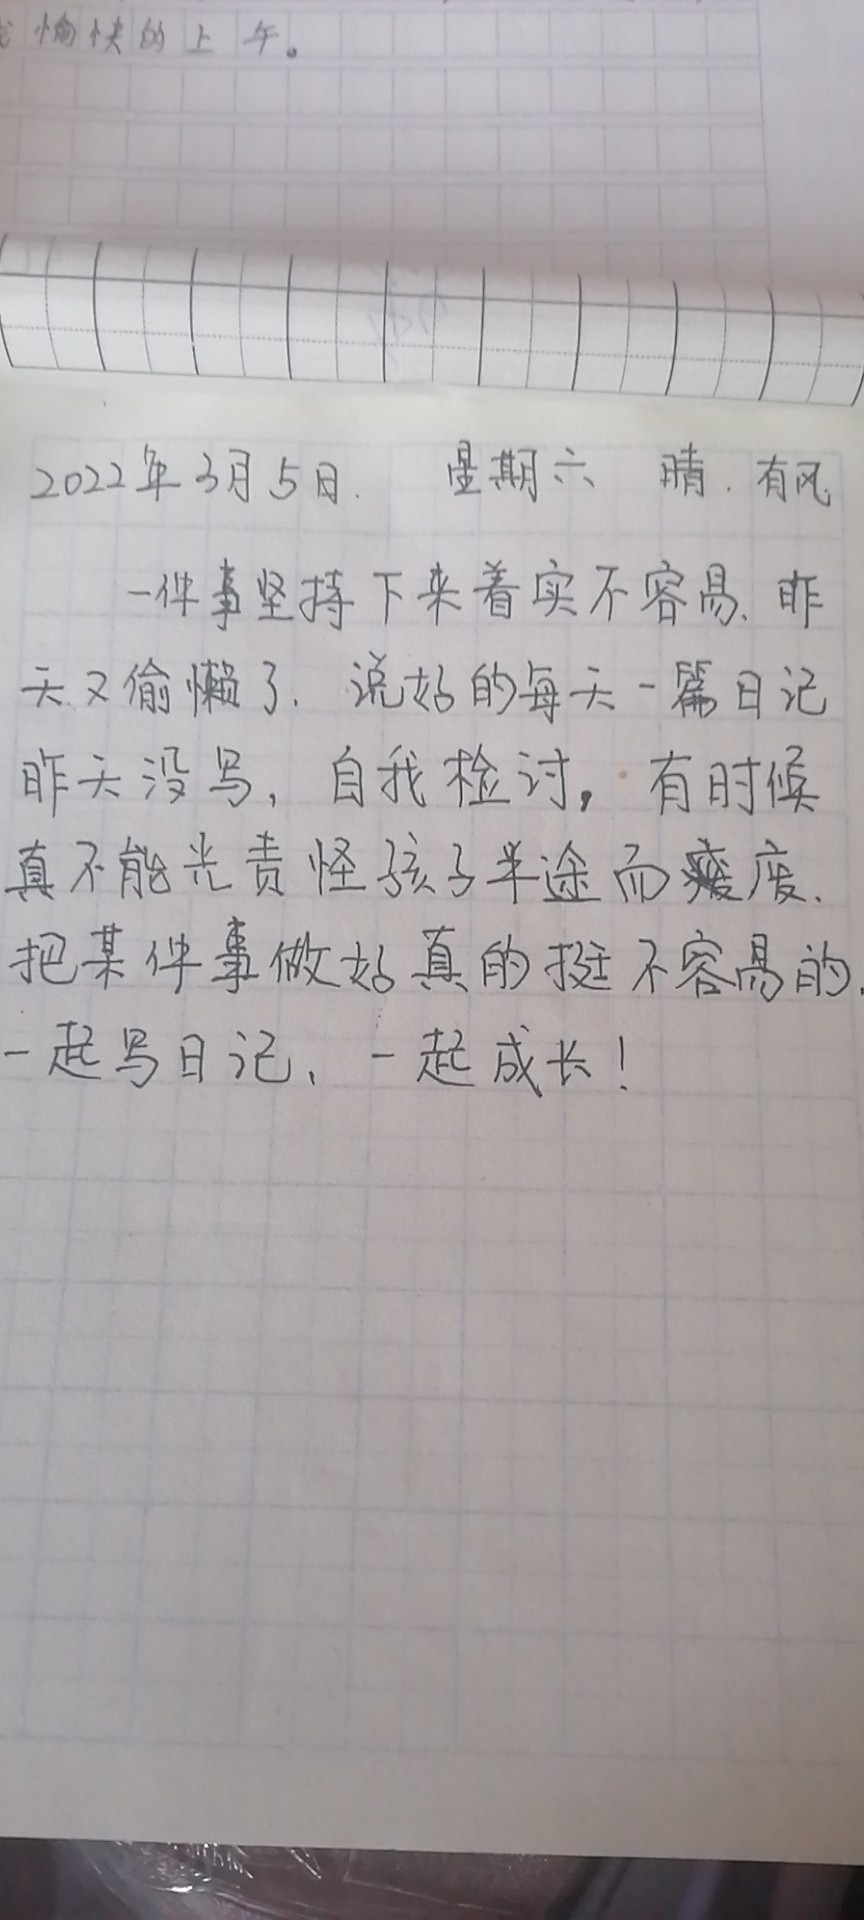 愉快的上午。
2022年3月5日. 星期六 晴.有风
一件事坚持下来着实不容易、昨
天又偷懒了.说好的每天一篇日记
昨天没写，自我检讨，有时候
真不能光责怪孩子半途而废、
把某件事做好真的挺不容易的.
一起写日记、一起成长！